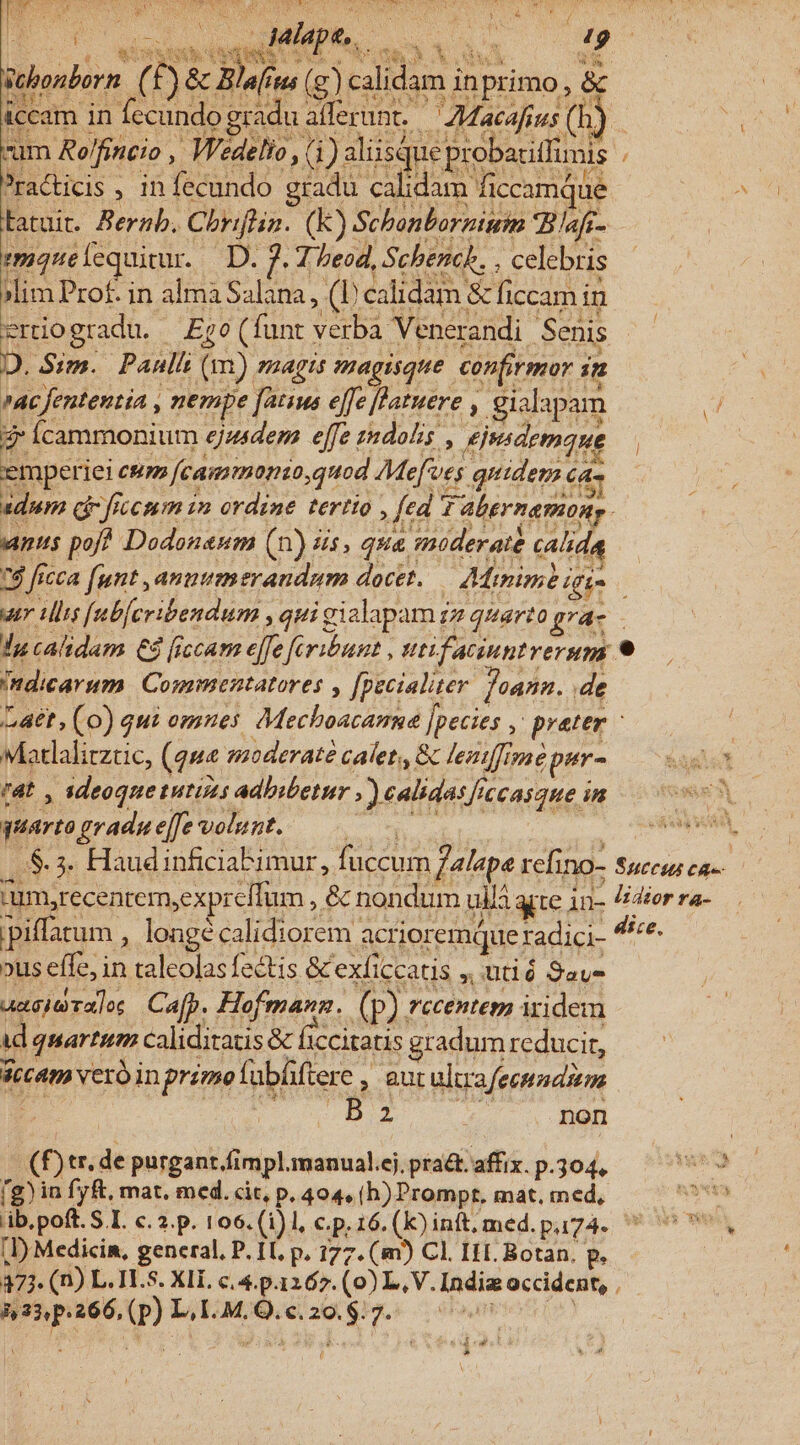 jalapæ. 19
Schonborn (f) & Blasius (g) calidam in primo, &
siccam in secundo gradu asserunt. Macasius (h)
cum Rolfincio, Wedelio, (i) aliisque probatissimis
Practicis, in secundo gradu calidam siccamque
statuit. Bernh. Christin. (k) Schonbornium Blasi-
umque sequitur. D. J. Theod, Schenck, , celebris
olim Prof. in alma Salana, (l) calidam & siccam in
tertio gradu. Ego (sunt verba Venerandi Senis
D. Sim. Paulli (m) magis magisque confirmor in
hac sententia, nempe satius esse statuere, gialapam
& scammonium ejusdem esse indolis, ejusdemque
temperiei cum scammonio, quod Mesves quidem ca-
lidum & siccum in ordine tertio, sed Tabernamon-
tanus post Dodonæum (n) iis, quæ moderatè calida
& sicca sunt, annumerandum docet. Minimè igi-
tur illis subscribendum, qui gialapam in quarto gra-
du calidam & siccam esse scribunt, uti faciunt rerum
Indicarum Commentatores, specialiter Joann. de
Laët, (o) qui omnes Mechoacannæ species, præter
Matlalitztic, (quæ moderatè calet, & lenissimè pur-
gat, ideoque tutius adhibetur,) calidas siccasque in
quarto gradu esse volunt.
§. 3. Haud inficiabimur, succum Jalapæ resino-
sum, recentem, expressum, & nondum ullâ arte in-
spissatum, longè calidiorem acrioremque radici-
bus esse, in taleolas sectis & exsiccatis, uti
Casp. Hofmann. (p) recentem iridem
ad quartum caliditatis & siccitatis gradum reducit,
siccam verò in primo subsistere, aut ultra secundum
B 2 non
Succus ca-
lidior ra-
dice.
(f) tr. de purgant. simpl. manual. ej. pract. affix. p. 304.
(g) in syst. mat. med. cit. p. 404. (h) Prompt. mat. med.
lib. post. S. I. c. 2. p. 106. (i) l. c. p. 16. (k) inst. med. p. 174.
(l) Medicin. general. P. II. p. 177. (m) Cl. III. Botan. p.
473. (n) L. II. S. XII. c. 4. p. 1267. (o) L. V. Indiæ occident.
p. 266. (p) L. I. M. O. c. 20. §. 7.